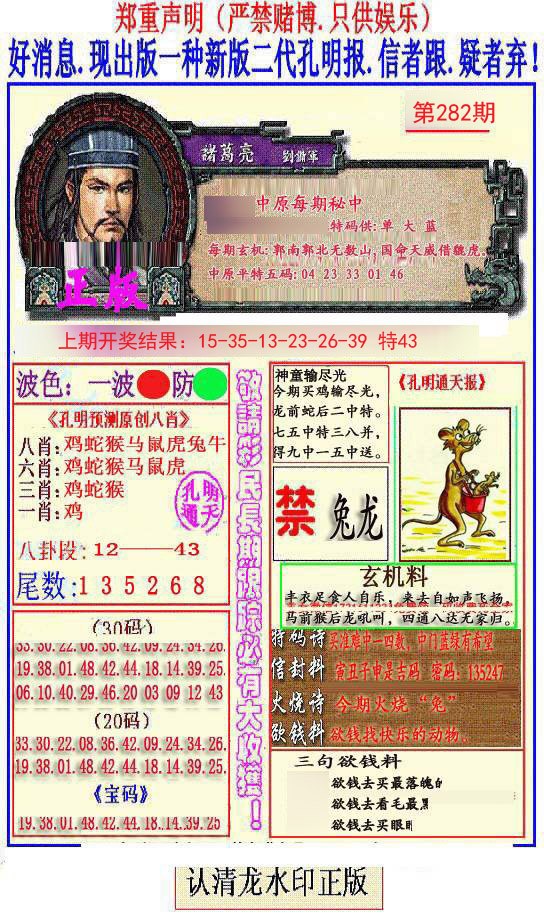 郑重声明（严禁赌博.只供娱乐）
好消息.现出版一种新版二代孔明报.信者跟.疑者弃!
第282期
諸葛亮 劉備軍
中原每期秘中
特码供:单 大 蓝
每期玄机:郭南郭北无数山,国命天威借貔虎.
中原平特五码:04 23 33 01 46
正版
上期开奖结果：15-35-13-23-26-39 特43
波色：一波 防
《孔明预测原创八肖》
八肖:鸡蛇猴马鼠虎兔牛
六肖:鸡蛇猴马鼠虎
三肖:鸡蛇猴
一肖:鸡
孔明
通天
八卦段：12——43
尾数:135268
(30码)
33.30.22.08.36.42.09.24.34.26
19.38.01.48.42.44.18.14.39.25
06.10.40.29.46.20 03 09 12 43
(20码)
33.30.22.08.36.42.09.24.34.26.
19.38.01.48.42.44.18.14.39.25.
《宝码》
19.38.01.48.42.44.18.14.39.25
敬請彩民長期跟踪必有大收獲！
神童输尽光
今期买鸡输尽光，
龙前蛇后二中特。
七五中特三八并，
得九中一五中送。
《孔明通天报》
禁 兔龙
玄机料
丰衣足食人自乐，来去自如声飞扬。
马前猴后龙吼叫，四通八达无家归。
特码诗 买准难中一四数，中门蓝绿有希望
信封料 寅丑子中是吉码 密码：135247
火烧诗 今期火烧“兔”
欲钱料 欲钱找快乐的动物.
三句欲钱料
欲钱去买最落魄的
欲钱去看毛最黑
欲钱去买眼
认清龙水印正版